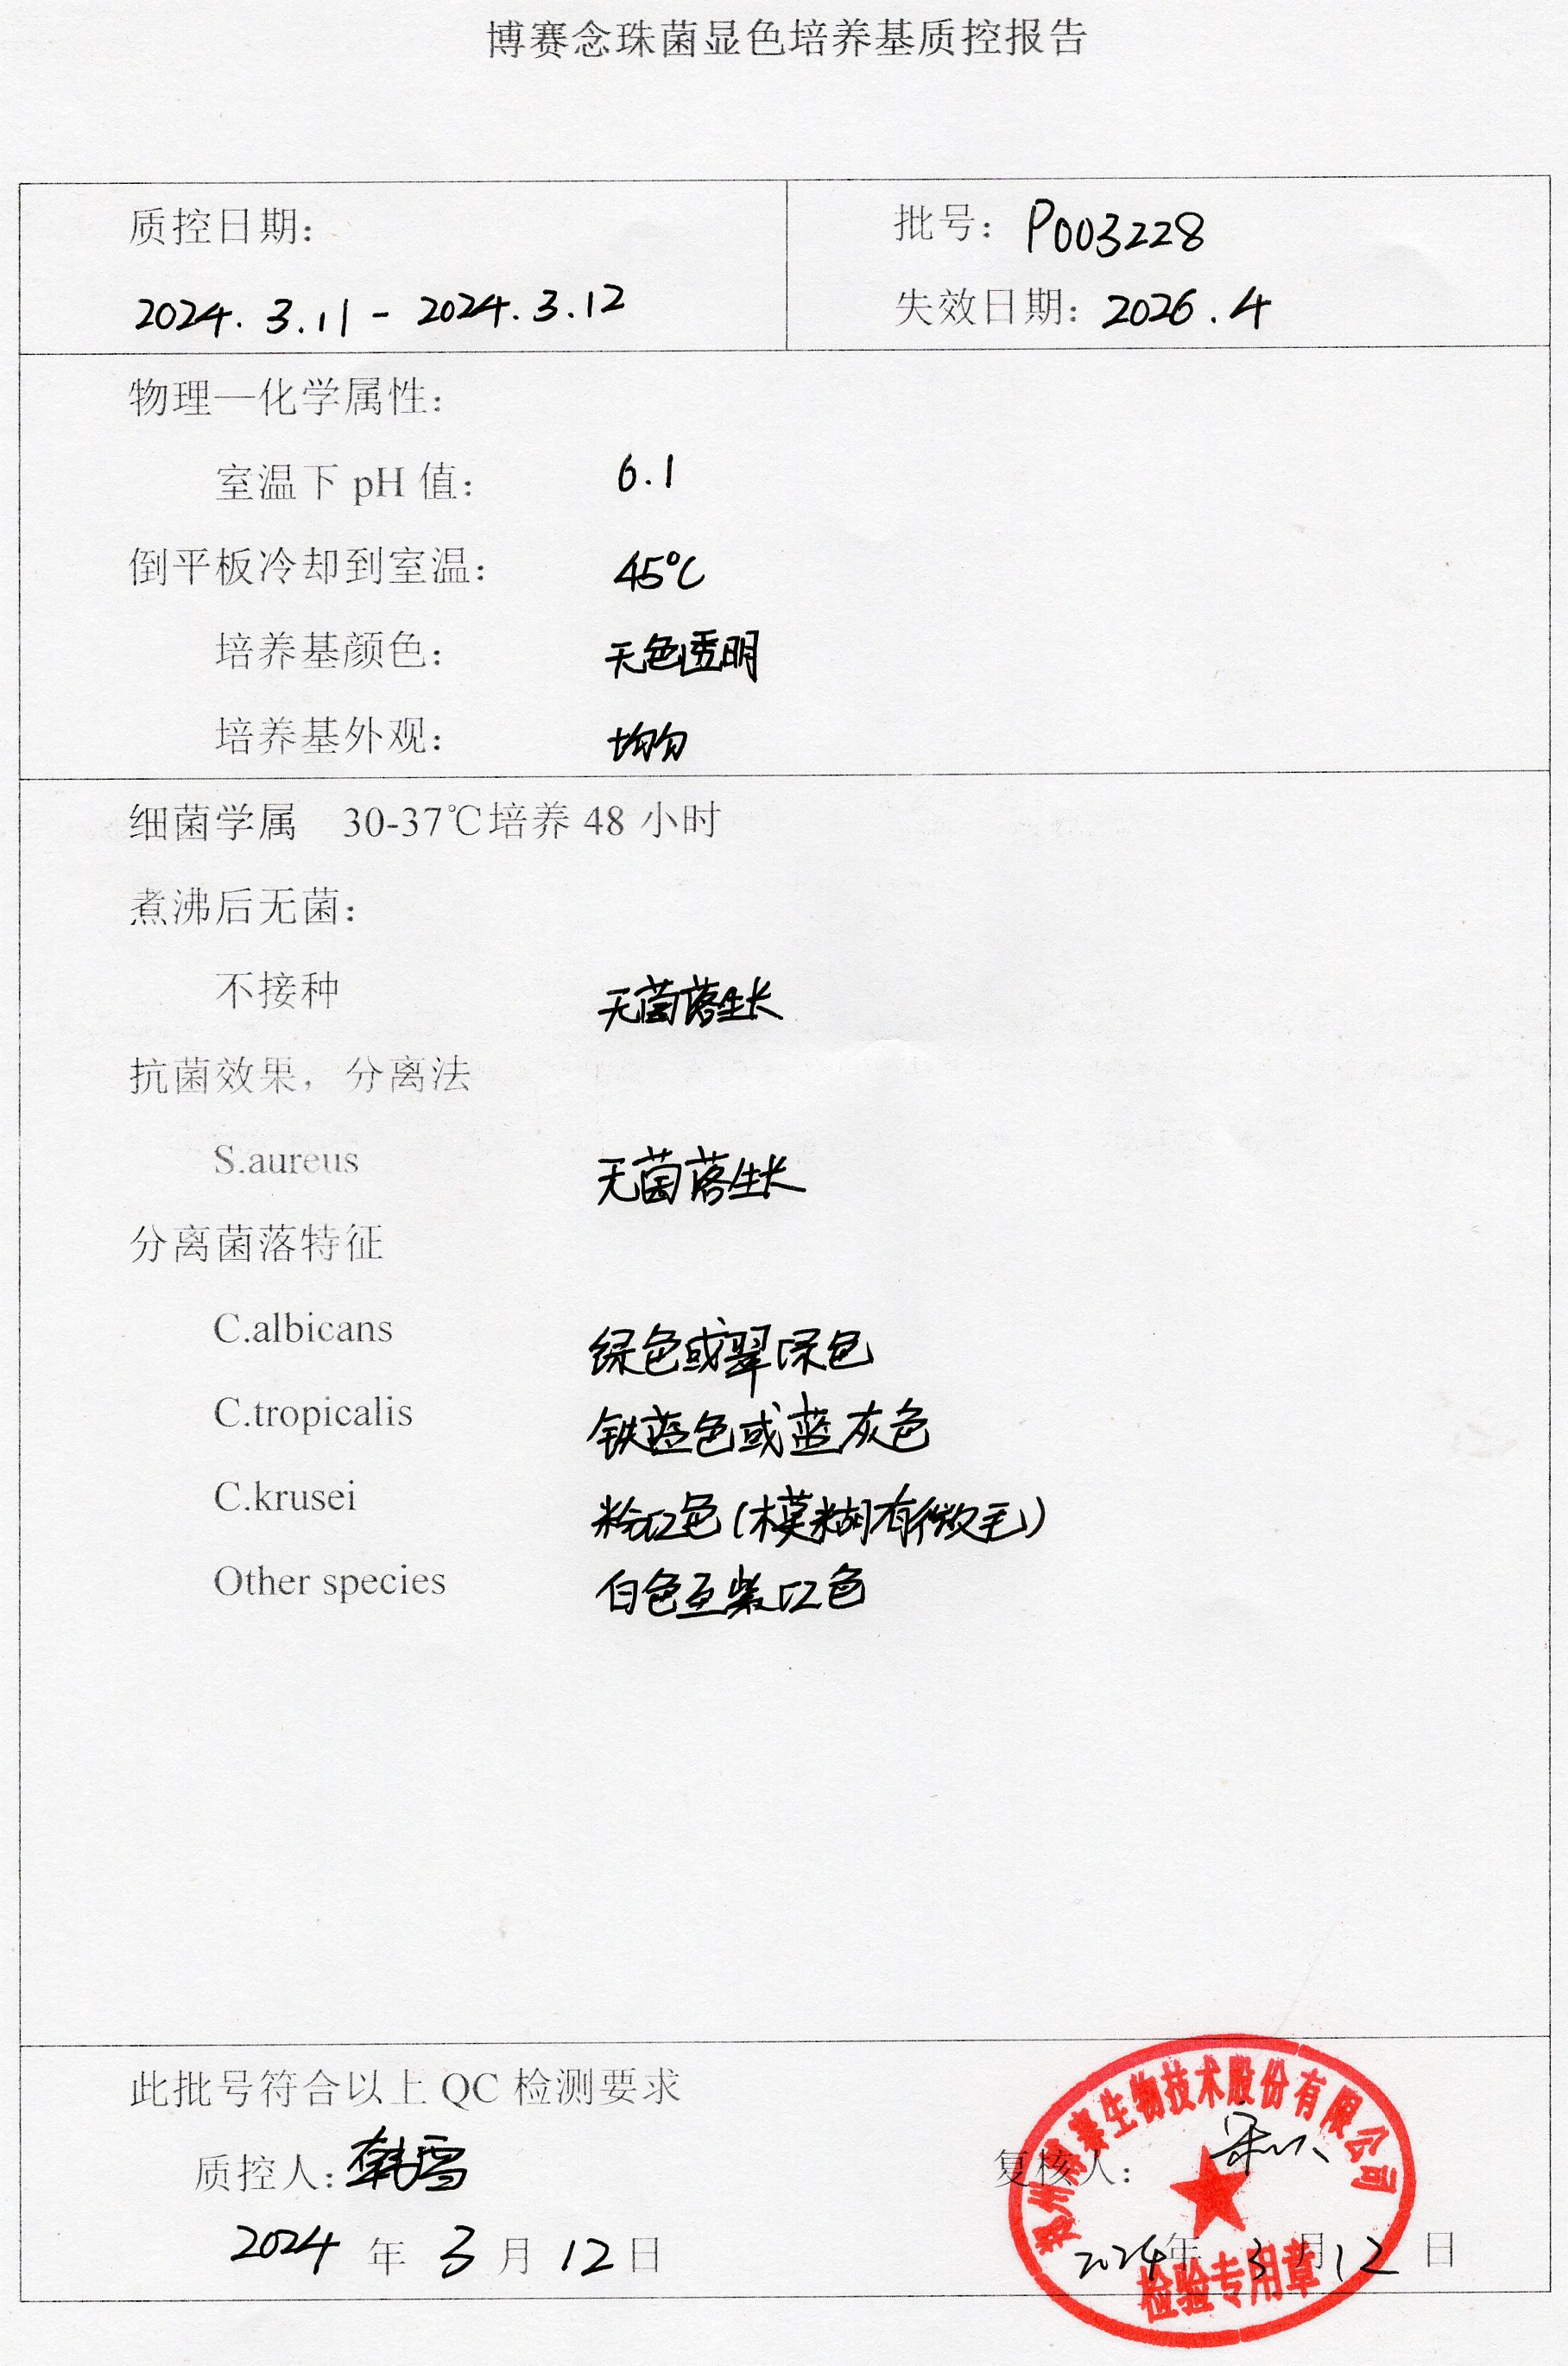 博赛念珠菌显色培养基质控报告
质控日期：
2024.3.11 - 2024.3.12
批号：P003228
失效日期：2026.4
物理—化学属性：
室温下 pH 值： 6.1
倒平板冷却到室温： 45℃
培养基颜色： 无色透明
培养基外观： 均匀
细菌学属 30-37℃培养 48 小时
煮沸后无菌：
不接种 无菌落生长
抗菌效果，分离法
S.aureus 无菌落生长
分离菌落特征
C.albicans 绿色或翠绿色
C.tropicalis 铁蓝色或蓝灰色
C.krusei 粉红色(模糊有微毛)
Other species 白色至紫红色
此批号符合以上 QC 检测要求
质控人：韩雪
2024 年 3 月 12 日
复核人：
2024 年 3 月 12 日
郑州博赛生物技术股份有限公司
检验专用章